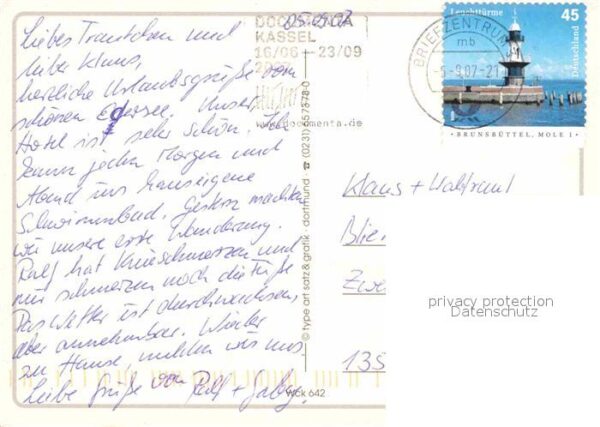 05.09.07
Liebes Trautchen und
lieber Klaus,
herzliche Urlaubsgrüße vom
schönen Edersee. Unser
Hotel ist sehr schön. Ich
kann jeden Morgen und
Abend ins hauseigene
Schwimmbad. Gestern machten
wir unsere erste Wanderung.
Ralf hat Knieschmerzen und
mir schmerzen noch die Füße
Das Wetter ist durchwachsen,
aber annehmbar. Wieder
zu Hause, melden wir uns
Liebe Grüße von Ralf + Gaby.
DOCUMENTA
KASSEL
16/06 - 23/09
www.documenta.de
BRIEFZENTRUM
mb
-5.9.07-21
Leuchttürme
45
Deutschland
BRUNSBÜTTEL, MOLE 1
© type art satz & grafik · dortmund ☎ (0231) 657378-0
Wck 642
Klaus + Waltraut
Blie
Zwe
135
privacy protection
Datenschutz